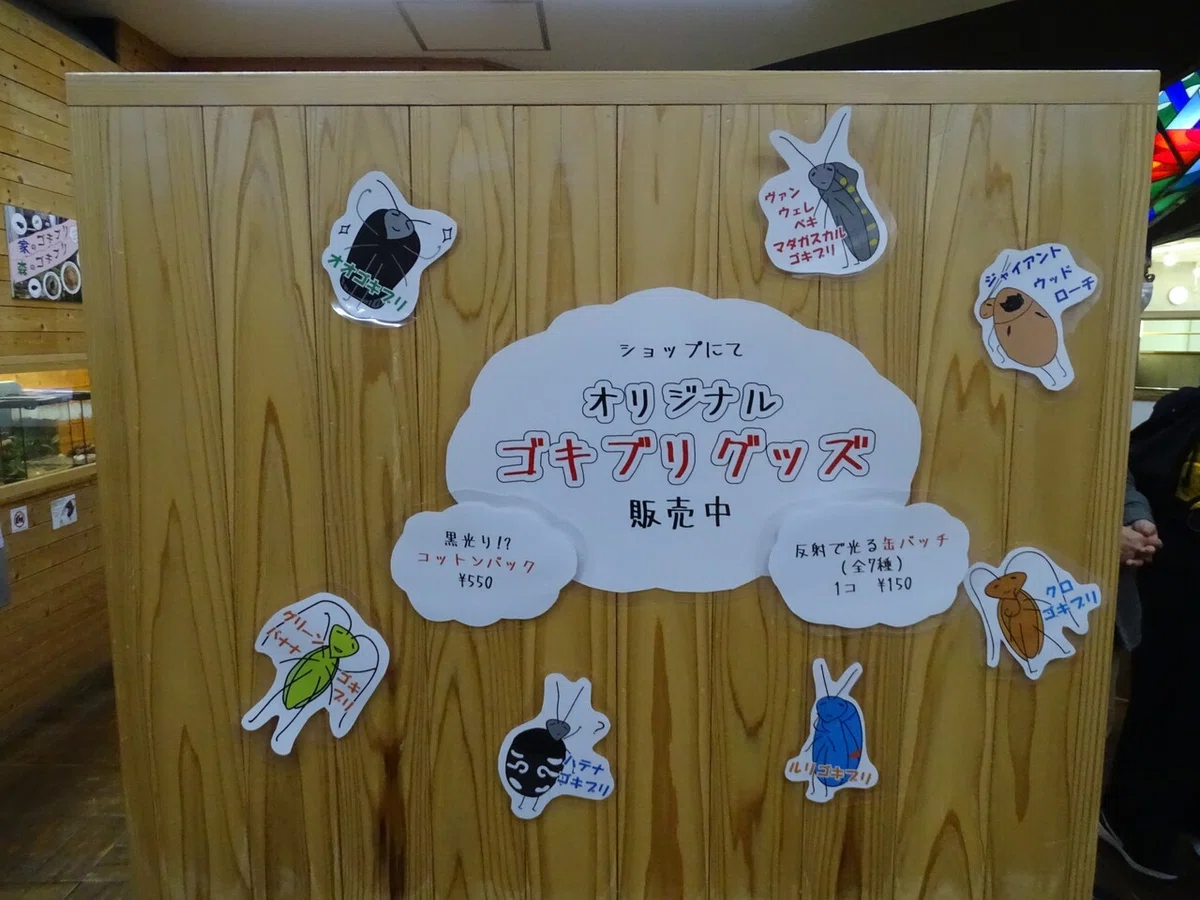 家のゴキブリ
森のゴキブリ
オオゴキブリ
ヴァン
ウェレ
ベキ
マダガスカル
ゴキブリ
ジャイアント
ウッド
ローチ
ショップにて
オリジナル
ゴキブリグッズ
販売中
黒光り!?
コットンバック
¥550
反射で光る缶バッチ
(全7種)
1コ ¥150
クロ
ゴキブリ
グリーン
バナナ
ゴキ
ブリ
ハテナ
ゴキブリ
ルリゴキブリ